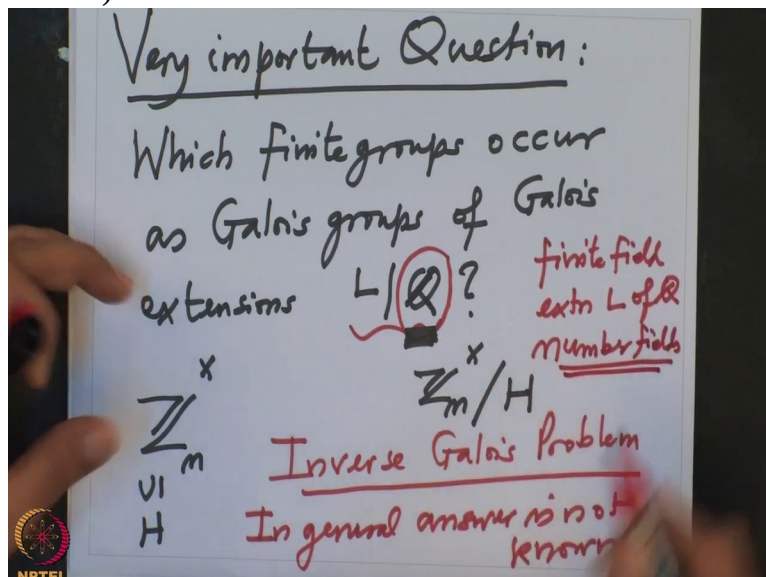 Very important Question:
Which finite groups occur
as Galois groups of Galois
extensions L|ℚ?
finite field
extn L of ℚ
number fields
ℤₘˣ
∪|
H
ℤₘˣ/H
Inverse Galois Problem
In general answer is not
known
NPTEL